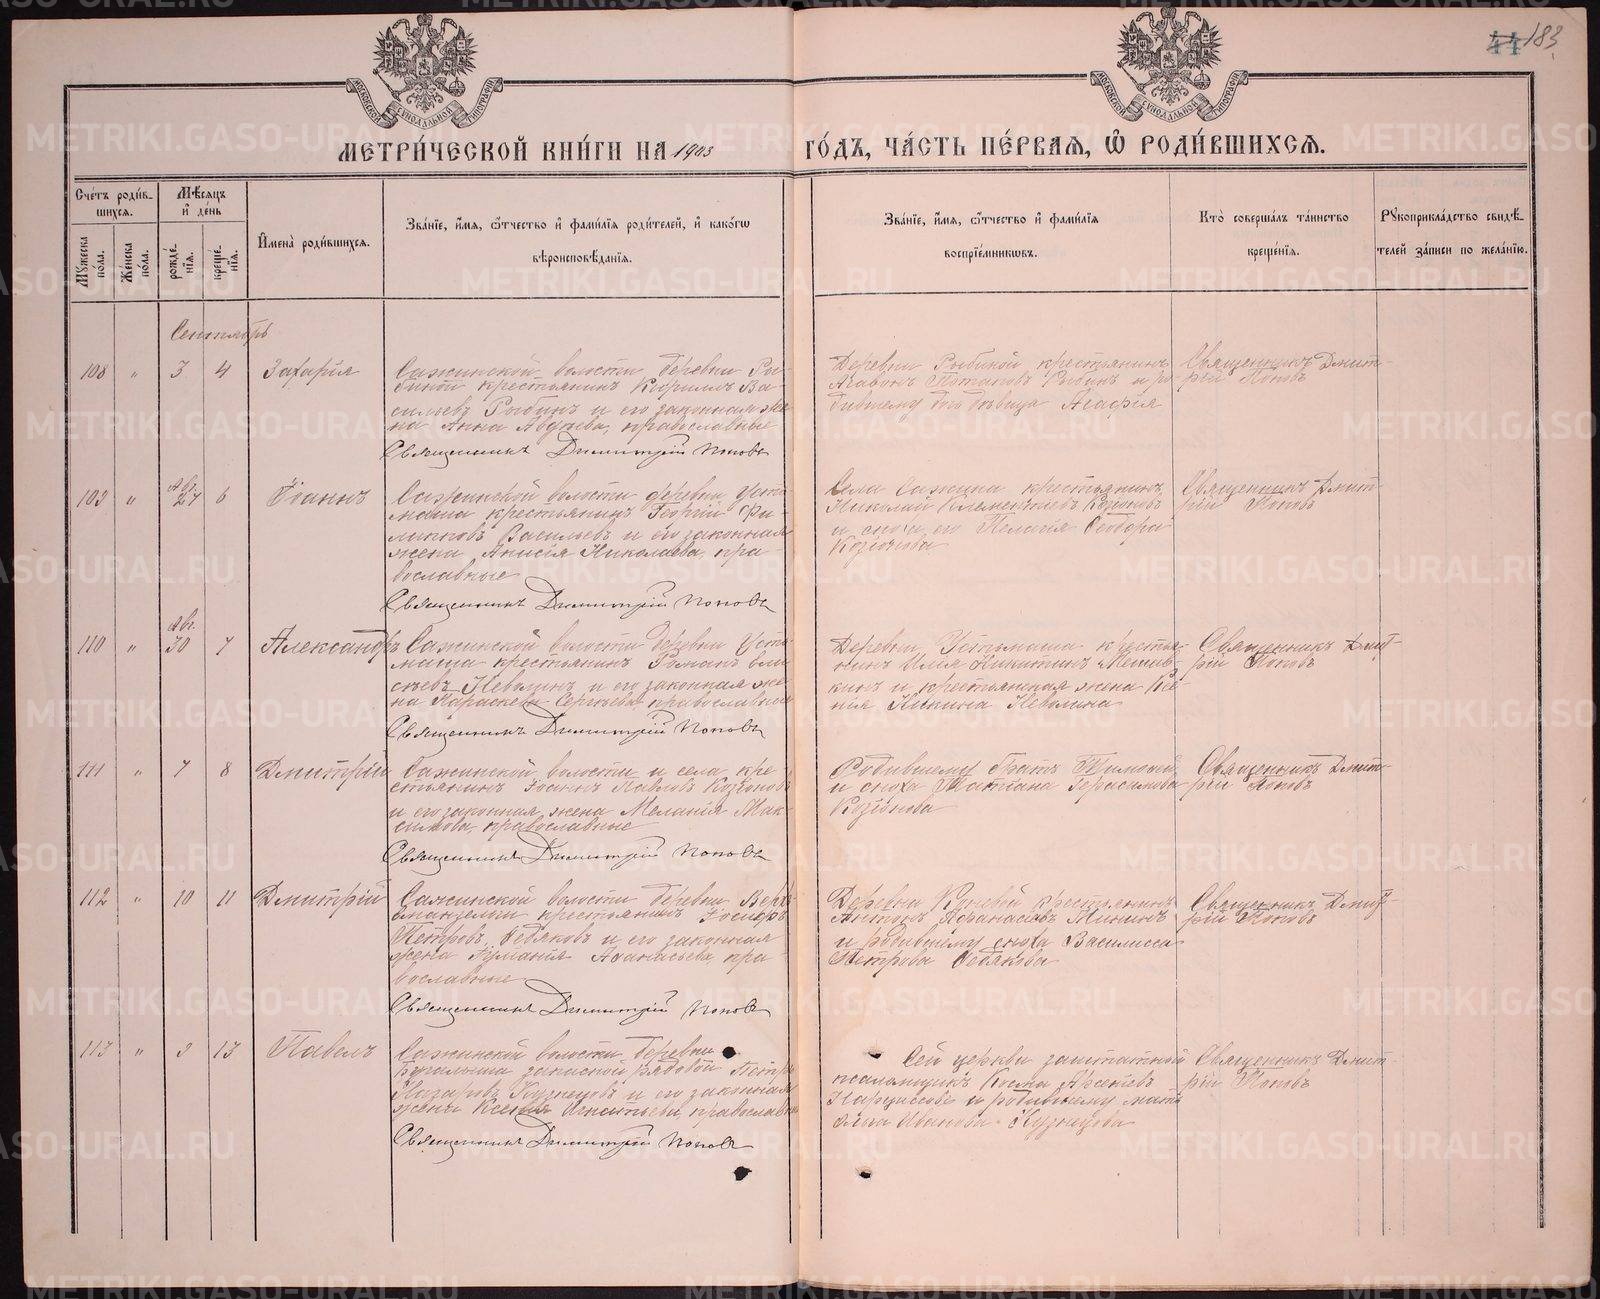 44 183
МОСКОВСКОЙ СѴНОДАЛЬНОЙ ТИПОГРАФІИ
МОСКОВСКОЙ СѴНОДАЛЬНОЙ ТИПОГРАФІИ
МЕТРИ́ЧЕСКОЙ КНИ́ГИ НА 1903 ГО́ДЪ, ЧА́СТЬ ПЕ́РВАЯ, Ѡ҆ РОДИ́ВШИХСЯ.
Сче́тъ роди́в-
шихся.
Му́жеска
по́ла.
Же́нска
по́ла.
Мѣ́сяцъ
и҆ де́нь
рожде́-
нїя.
креще́-
нїя.
И҆мена̀ роди́вшихся.
Зва́нїе, и҆́мя, ѻ҆́тчество и҆ фами́лїя роди́телей, и҆ како́гѡ
вѣроисповѣ́данїя.
Зва́нїе, и҆́мя, ѻ҆́тчество и҆ фами́лїя
воспрїе́мникѡвъ.
Кто̀ соверша́лъ та́инство
креще́нїя.
Рꙋкоприкла́дство свидѣ́-
телей за́писи по жела́нїю.
Сентябрь
108 " 3 4 Захарія
Сажинской волости деревни Ры-
биной крестьянинъ Кириллъ Ва-
сильевъ Рыбинъ и его законная же-
на Анна Авдѣева, православные
Священникъ Димитрій Поповъ
Деревни Рыбиной крестьянинъ
Агафонъ Потаповъ Рыбинъ и ро-
дившему дочь дѣвица Агафія
Священникъ Дмит-
рій Поповъ
109 " Авг. 27 6 Іоаннъ
Сажинской волости деревни Усть
маша крестьянинъ Георгій Фи-
липповъ Васильевъ и его законная
жена Анисія Николаева, пра-
вославные
Священникъ Димитрій Поповъ
Села Сажина крестьянинъ
Николай Клементьевъ Козіоновъ
и сноха его Пелагія Ѳеодора
Козіонова
Священникъ Дмит-
рій Поповъ
110 " Авг. 30 7 Александръ
Сажинской волости деревни Усть
маша крестьянинъ Романъ Ели-
сѣевъ Неволинъ и его законная же-
на Параскева Сергѣева православные
Священникъ Димитрій Поповъ
Деревни Устьмаша крестья-
нинъ Илія Никитинъ
и крестьянская жена Ксе-
нія Никина Неволина
Священникъ Дмит-
рій Поповъ
111 " 7 8 Дмитрій
Сажинской волости и села кре-
стьянинъ Іоаннъ Павловъ Козіоновъ
и его законная жена Меланія Мак-
симова, православные
Священникъ Димитрій Поповъ
Родившему братъ Тимоѳей
и сноха Татіана Герасимова
Козіонова
Священникъ Дмит-
рій Поповъ
112 " 10 11 Дмитрій
Сажинской волости деревни Верх-
крестьянинъ Іосифъ
Петровъ Ѳедяковъ и его законная
жена Аѳанасьева, пра-
вославные
Священникъ Димитрій Поповъ
Деревни Коневой крестьянинъ
Антонъ Аѳанасіевъ Мининъ
и родившему сноха Василисса
Петрова Ѳедякова
Священникъ Дмит-
рій Поповъ
113 " 9 13 Павелъ
Сажинской волости деревни
запасной рядовой Петръ
Назаровъ Кузнецовъ и его законная
жена Ксенія Игнатьева, православные
Священникъ Димитрій Поповъ
Сей церкви заштатной
псаломщикъ Косма Арсеніевъ
Нарциссовъ и родившему мать
Анна Иванова Кузнецова
Священникъ Дмит-
рій Поповъ